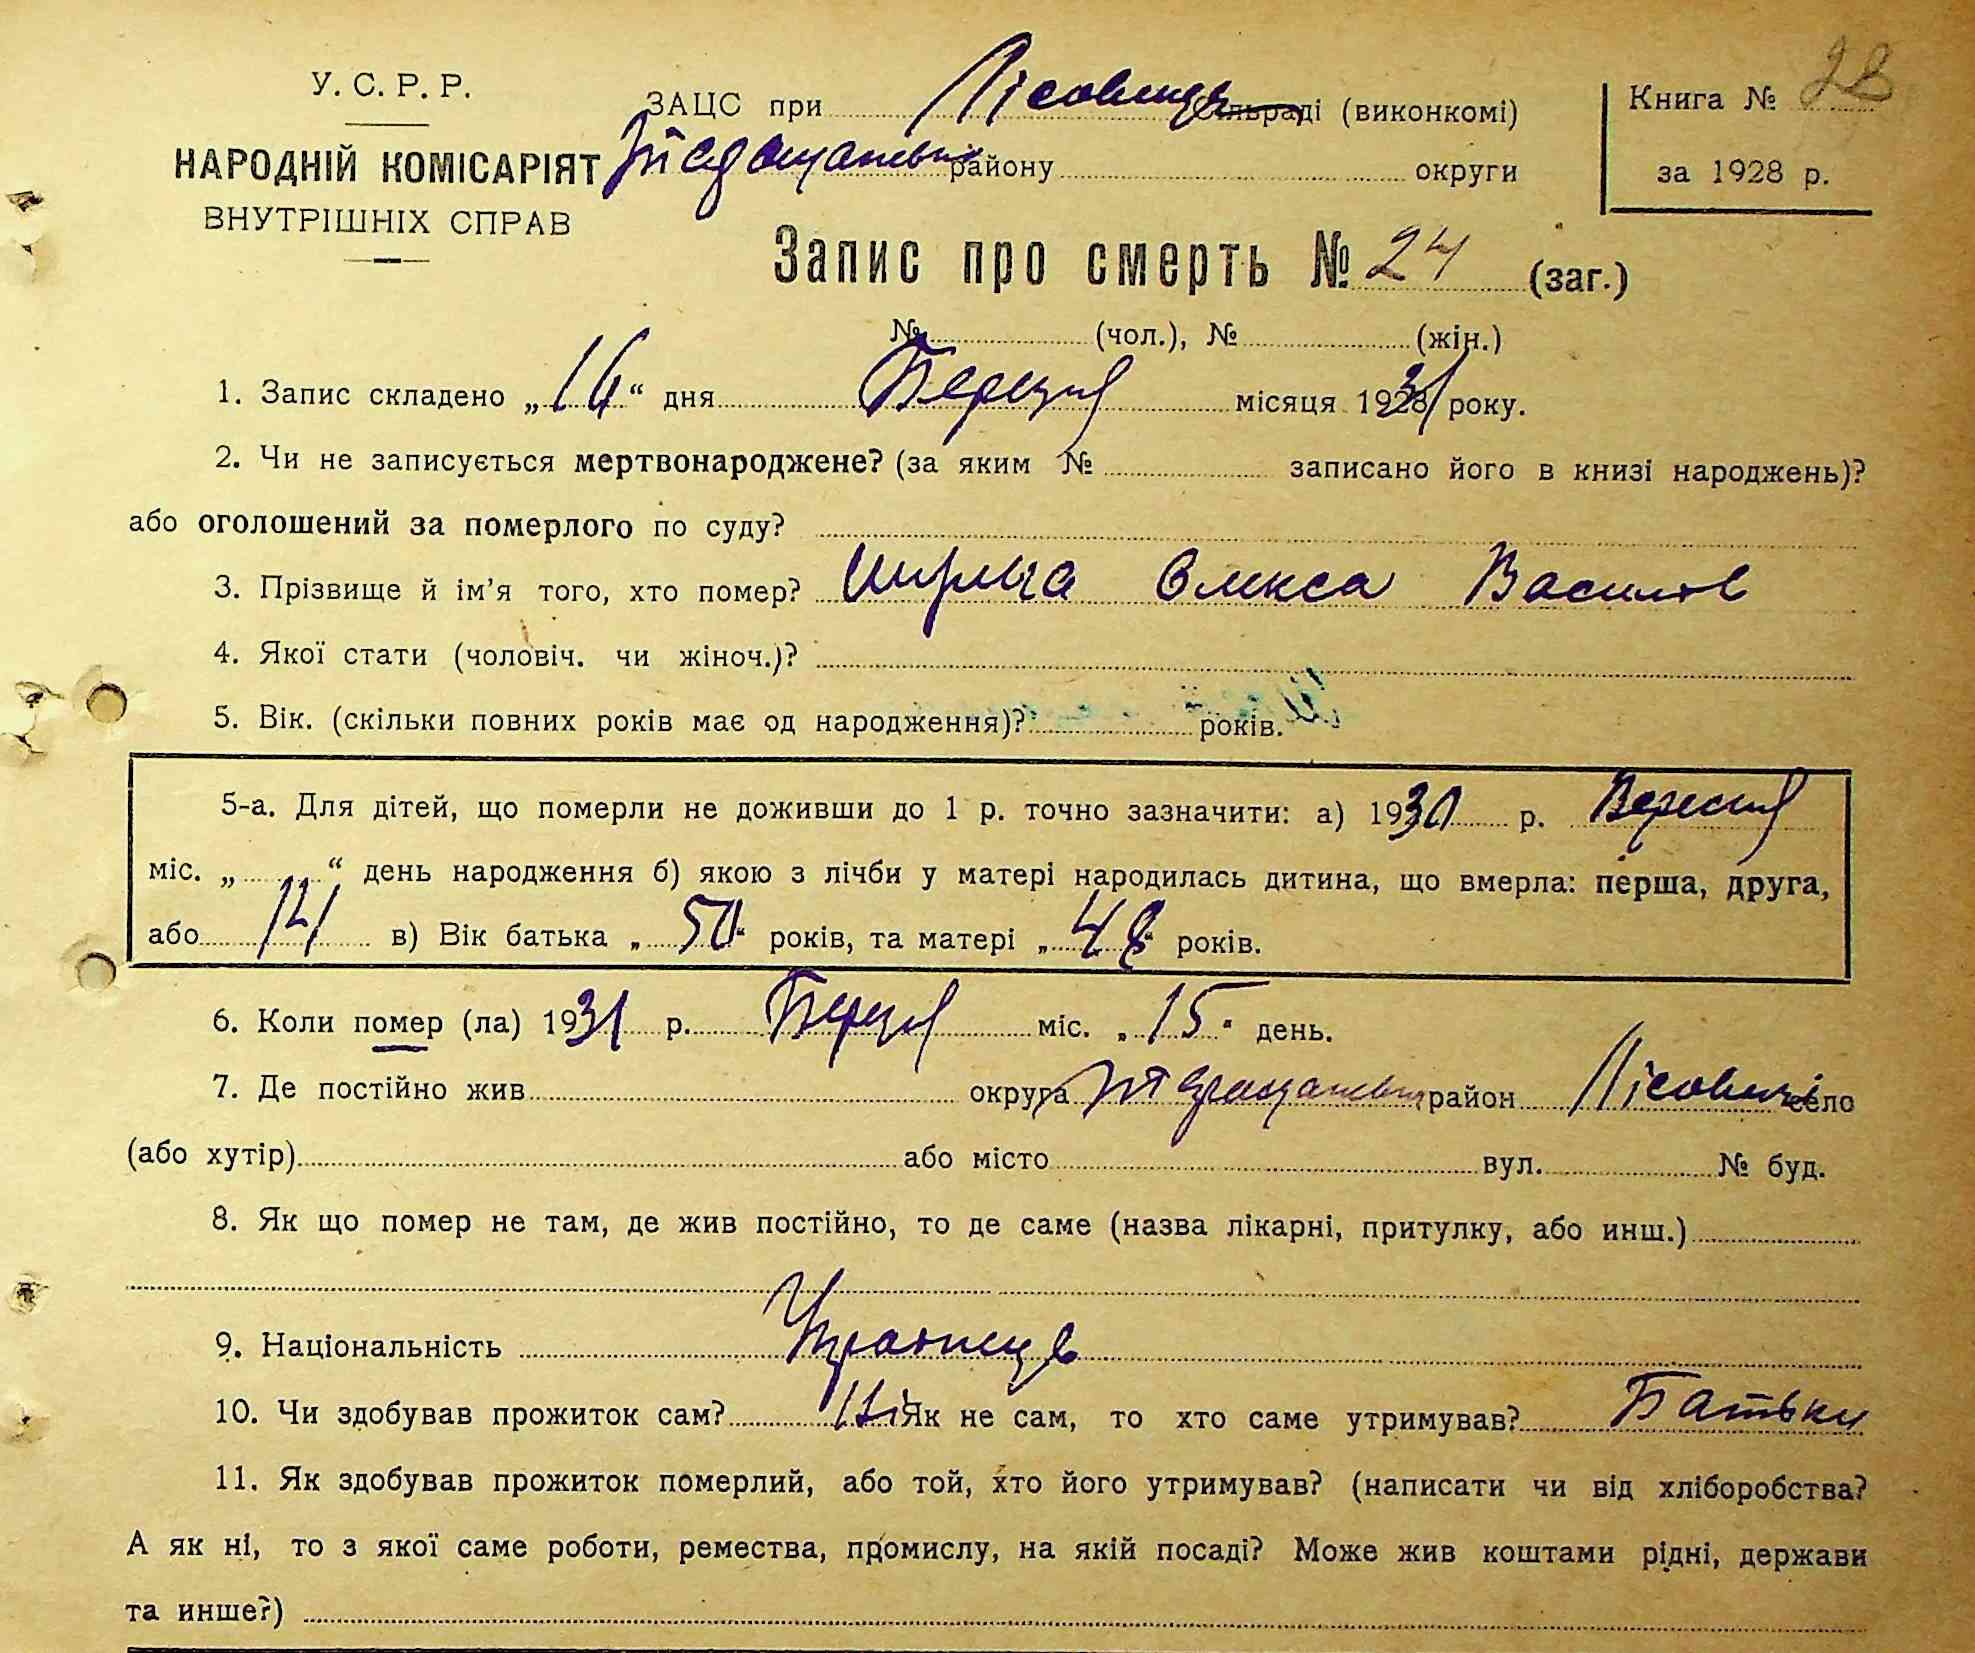 У. С. Р. Р.
НАРОДНІЙ КОМІСАРІЯТ
ВНУТРІШНІХ СПРАВ
ЗАЦС при Лісовицькій сільраді (виконкомі)
району округи
Книга № 28
за 1928 р.
Запис про смерть № 24 (заг.)
№ (чол.), № (жін.)
1. Запис складено „16“ дня Березня місяця 1931 року.
2. Чи не записується мертвонароджене? (за яким № записано його в книзі народжень)?
або оголошений за померлого по суду?
3. Прізвище й ім’я того, хто помер? Олекса Василів
4. Якої стати (чоловіч. чи жіноч.)?
5. Вік. (скільки повних років має од народження)? років.
5-а. Для дітей, що померли не доживши до 1 р. точно зазначити: а) 1930 р. Вересня
міс. „ “ день народження б) якою з лічби у матері народилась дитина, що вмерла: перша, друга,
або 14 в) Вік батька „50“ років, та матері „48“ років.
6. Коли помер (ла) 1931 р. Березня міс. „15“ день.
7. Де постійно жив округа район Лісовичі село
(або хутір) або місто вул. № буд.
8. Як що помер не там, де жив постійно, то де саме (назва лікарні, притулку, або инш.)
9. Національність Українець
10. Чи здобував прожиток сам? Ні Як не сам, то хто саме утримував? Батьки
11. Як здобував прожиток померлий, або той, хто його утримував? (написати чи від хліборобства?
А як ні, то з якої саме роботи, ремества, промислу, на якій посаді? Може жив коштами рідні, держави
та инше?)